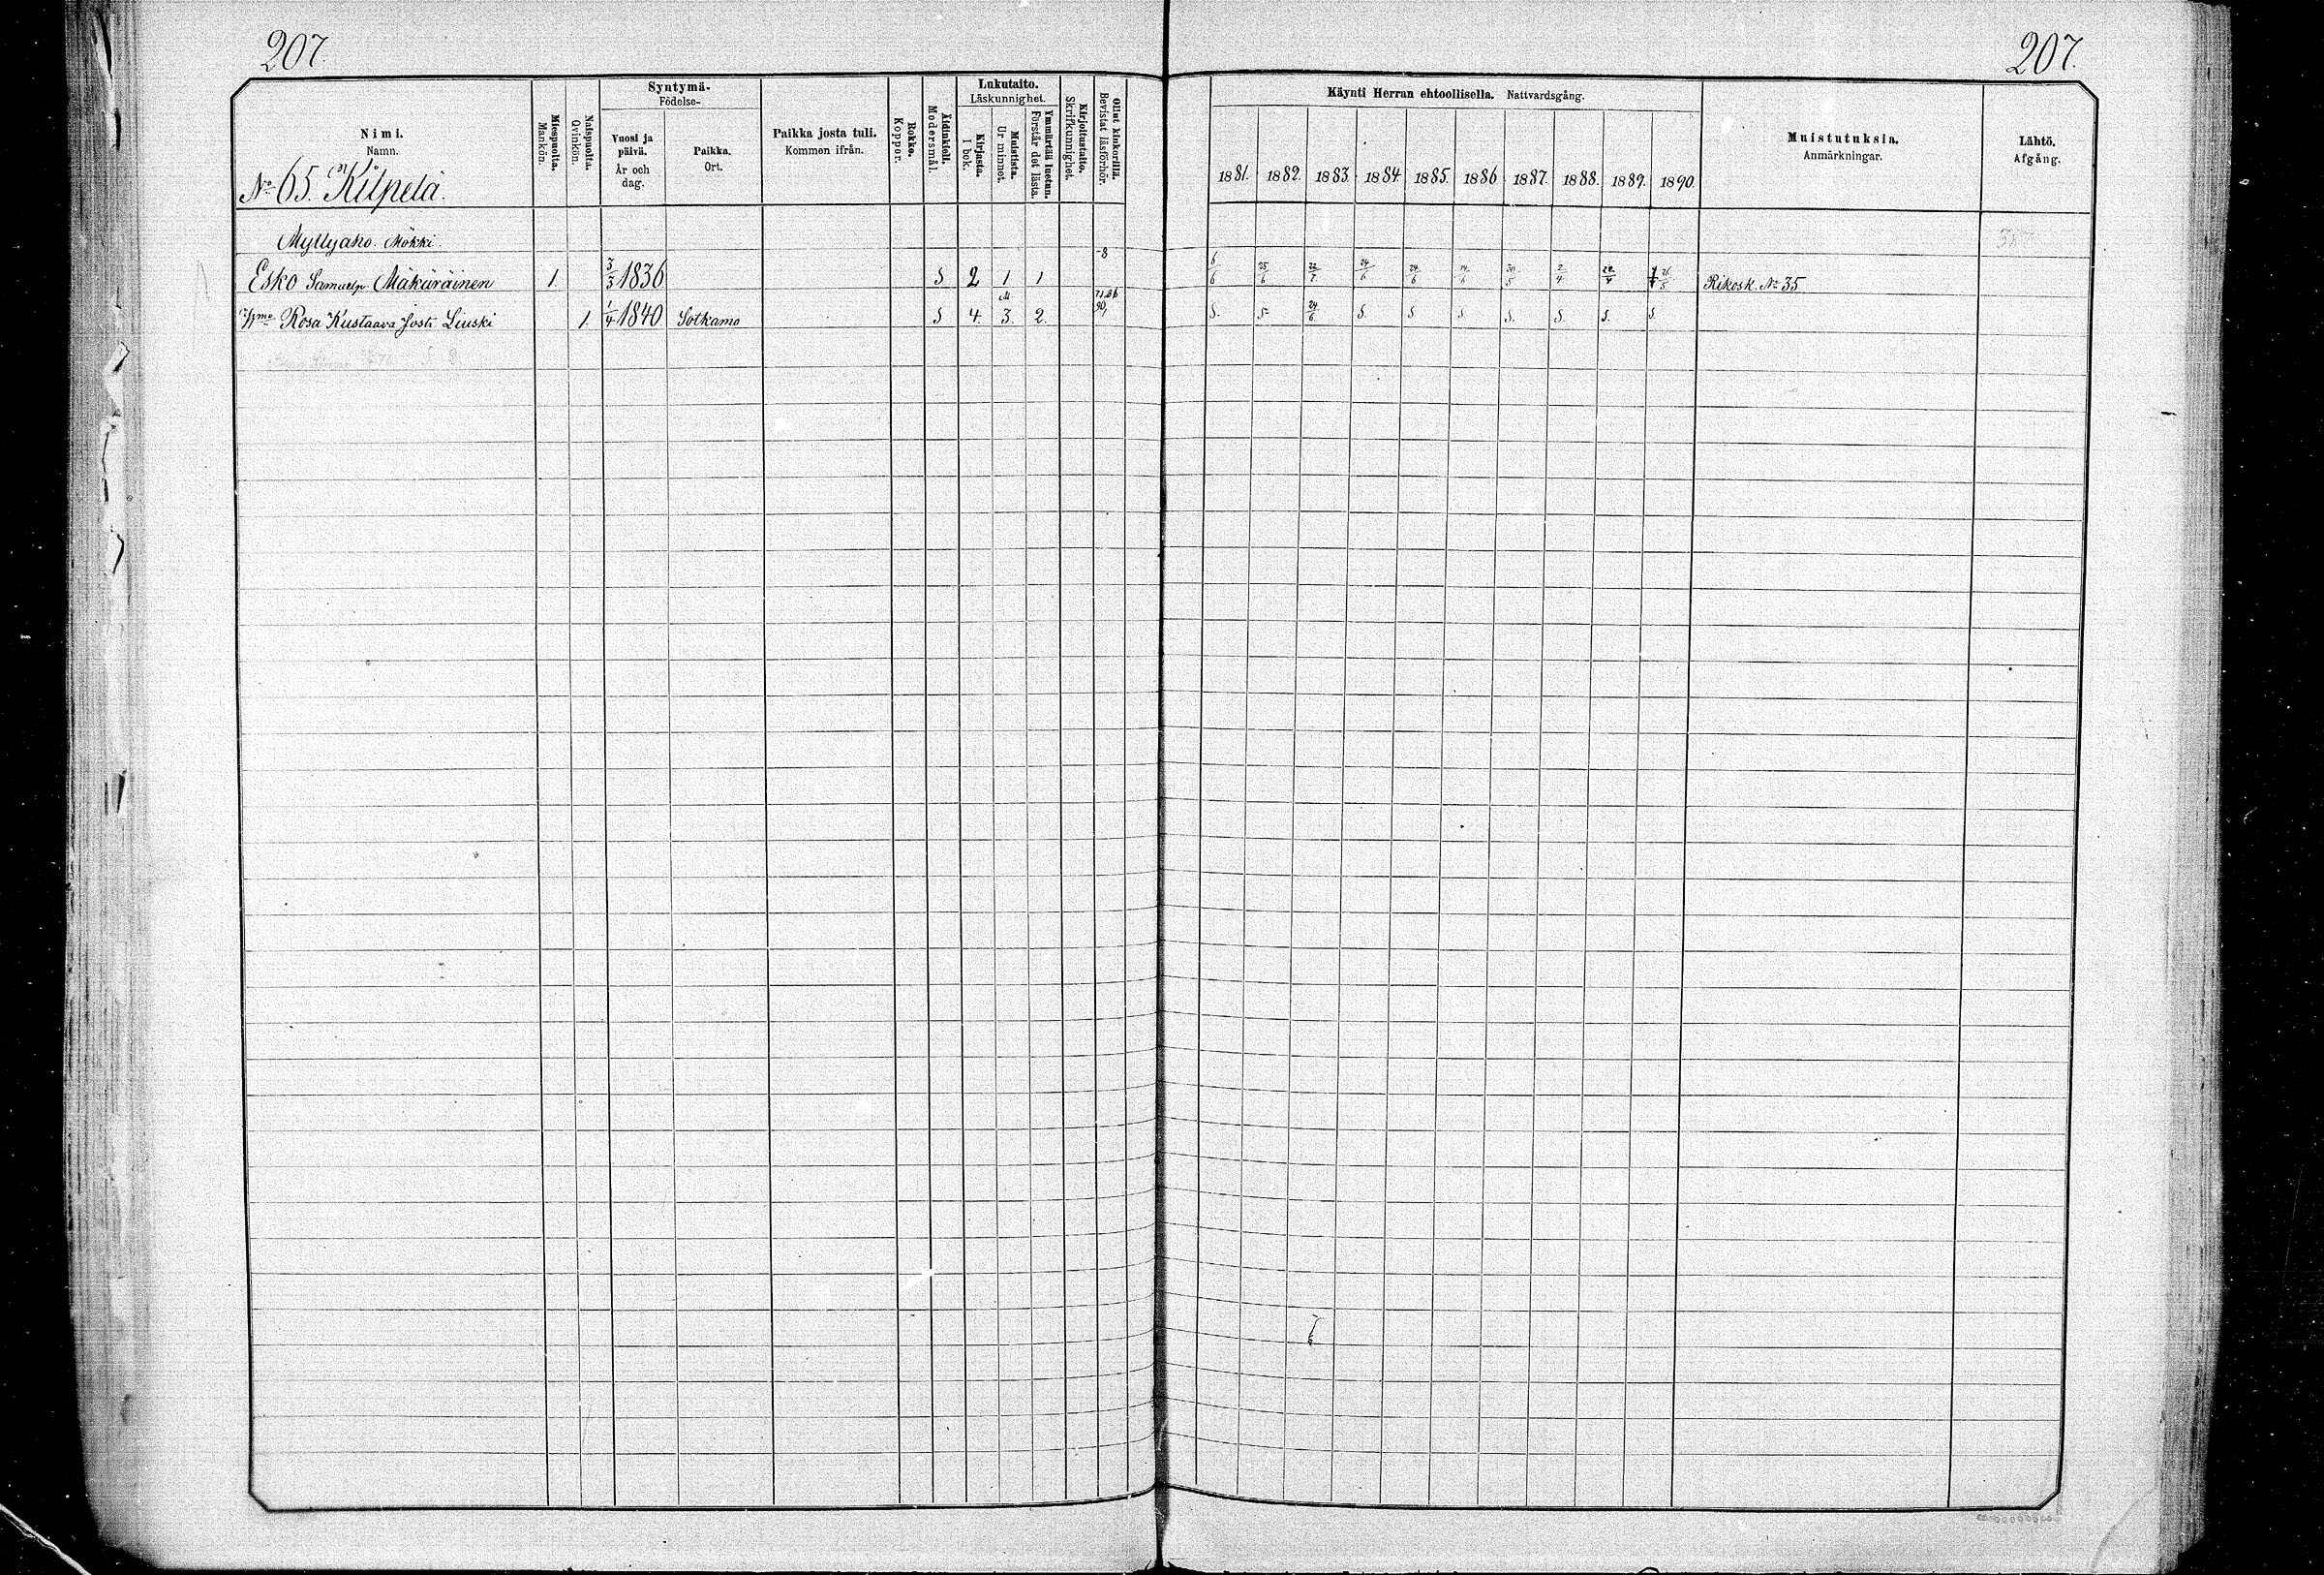 207. 207.
Nimi. Namn.
Miespuolta. Mankön.
Naispuolta. Qvinkön.
Syntymä- Födelse-
Vuosi ja päivä. År och dag.
Paikka. Ort.
Paikka josta tuli. Kommen ifrån.
Rokko. Koppor.
Äidinkieli. Modersmål.
Lukutaito. Läskunnighet.
Kirjasta. I bok.
Muistista. Ur minnet.
Ymmärtää luetun. Förstår det lästa.
Kirjoitustaito. Skrifkunnighet.
Ollut kinkerillä. Bevistat läsförhör.
Käynti Herran ehtoollisella. Nattvardsgång.
1881. 1882. 1883. 1884. 1885. 1886 1887. 1888. 1889. 1890.
Muistutuksia. Anmärkningar.
Lähtö. Afgång.
No 65. Kilpelä.
Myllyaho. Mökki.
Esko Samuelp. Mäkäräinen 1. 3/3 1836 S 2 1 1 6/6 25/6 22/7. 24/6 24/6 14/6 30/5 2/4 22/4 26/5 Rikosk. No 35
Rosa Kustaava Liuski 1. 1/4 1840 Sotkamo S 4. 3. 2. 90, S. S. 24/6. S. S S S. S. S. S.